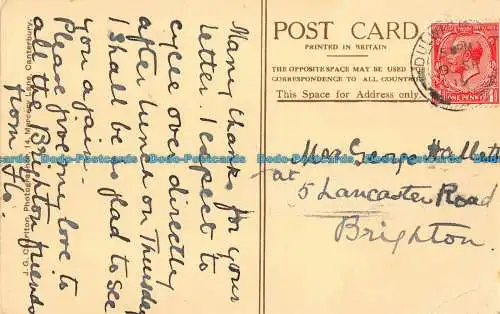 Many thanks for your
letter I expect to
cycle over directly
after lunch on Thursday
I shall be so glad to see
you again -
Please give my love to
all the Brighton friends
from Flo.
J. G. Charlton, Photographer, 14, Mercery Lane, Canterbury.
POST CARD
PRINTED IN BRITAIN
THE OPPOSITE SPACE MAY BE USED
CORRESPONDENCE TO ALL COUNTRIES
This Space for Address only
ONE PENNY
Mrs George
at
5 Lancaster Road
Brighton
Dodo-Postcards Dodo-Postcards Dodo-Postcards Dodo-Postcards Dodo-Postcards